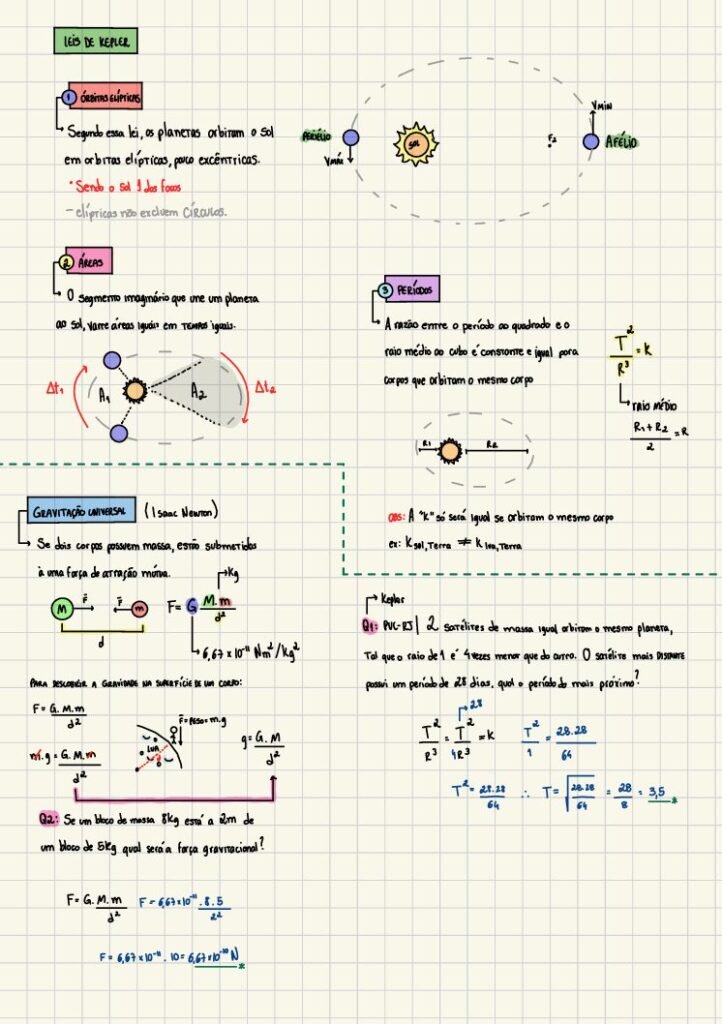 LEIS DE KEPLER
1 ÓRBITAS ELÍPTICAS
Segundo essa lei, os planetas orbitam o sol
em orbitas elípticas, pouco excêntricas.
* Sendo o sol 1 dos focos
- elípticas não excluem CÍRCULOS.
PERIÉLIO
Vmáx
SOL
F2
Vmin
AFÉLIO
2 ÁREAS
O segmento imaginário que une um planeta
ao sol, varre áreas iguais em TEMPOS iguais.
Δt1 A1 A2 Δt2
3 PERÍODOS
A razão entre o período ao quadrado e o
raio médio ao cubo é constante e igual para
corpos que orbitam o mesmo corpo
T²/R³ = K
RAIO MÉDIO
R1 + R2/2 = R
R1 R2
OBS: A "K" só será igual se orbitam o mesmo corpo
ex: K sol,Terra ≠ K lua,Terra
GRAVITAÇÃO UNIVERSAL (Isaac Newton)
Se dois corpos possuem massa, estão submetidos
à uma força de atração mútua.
M F F m
d
F = G M.m/d²
Kg
6,67 x 10⁻¹¹ Nm²/Kg²
PARA DESCOBRIR A GRAVIDADE NA SUPERFÍCIE DE UM CORPO:
F = G.M.m/d²
m.g = G.M.m/d²
LUA
F = PESO = m.g
g = G.M/d²
Q2: Se um bloco de massa 8kg está a 2m de
um bloco de 5kg qual será a força gravitacional?
F = G.M.m/d² F = 6,67x10⁻¹¹.8.5/2²
F = 6,67x10⁻¹¹.10 = 6,67x10⁻¹⁰ N *
Kepler
Q1: PUC-RJ | 2 satélites de massa igual orbitam o mesmo planeta,
Tal que o raio de 1 é 4 vezes menor que do outro. O satélite mais DISTANTE
possui um período de 28 dias, qual o período do mais próximo?
28
T²/R³ = T²/4R³ = K T²/1 = 28.28/64
T² = 28.28/64 ∴ T = √28.28/64 = 28/8 = 3,5 *